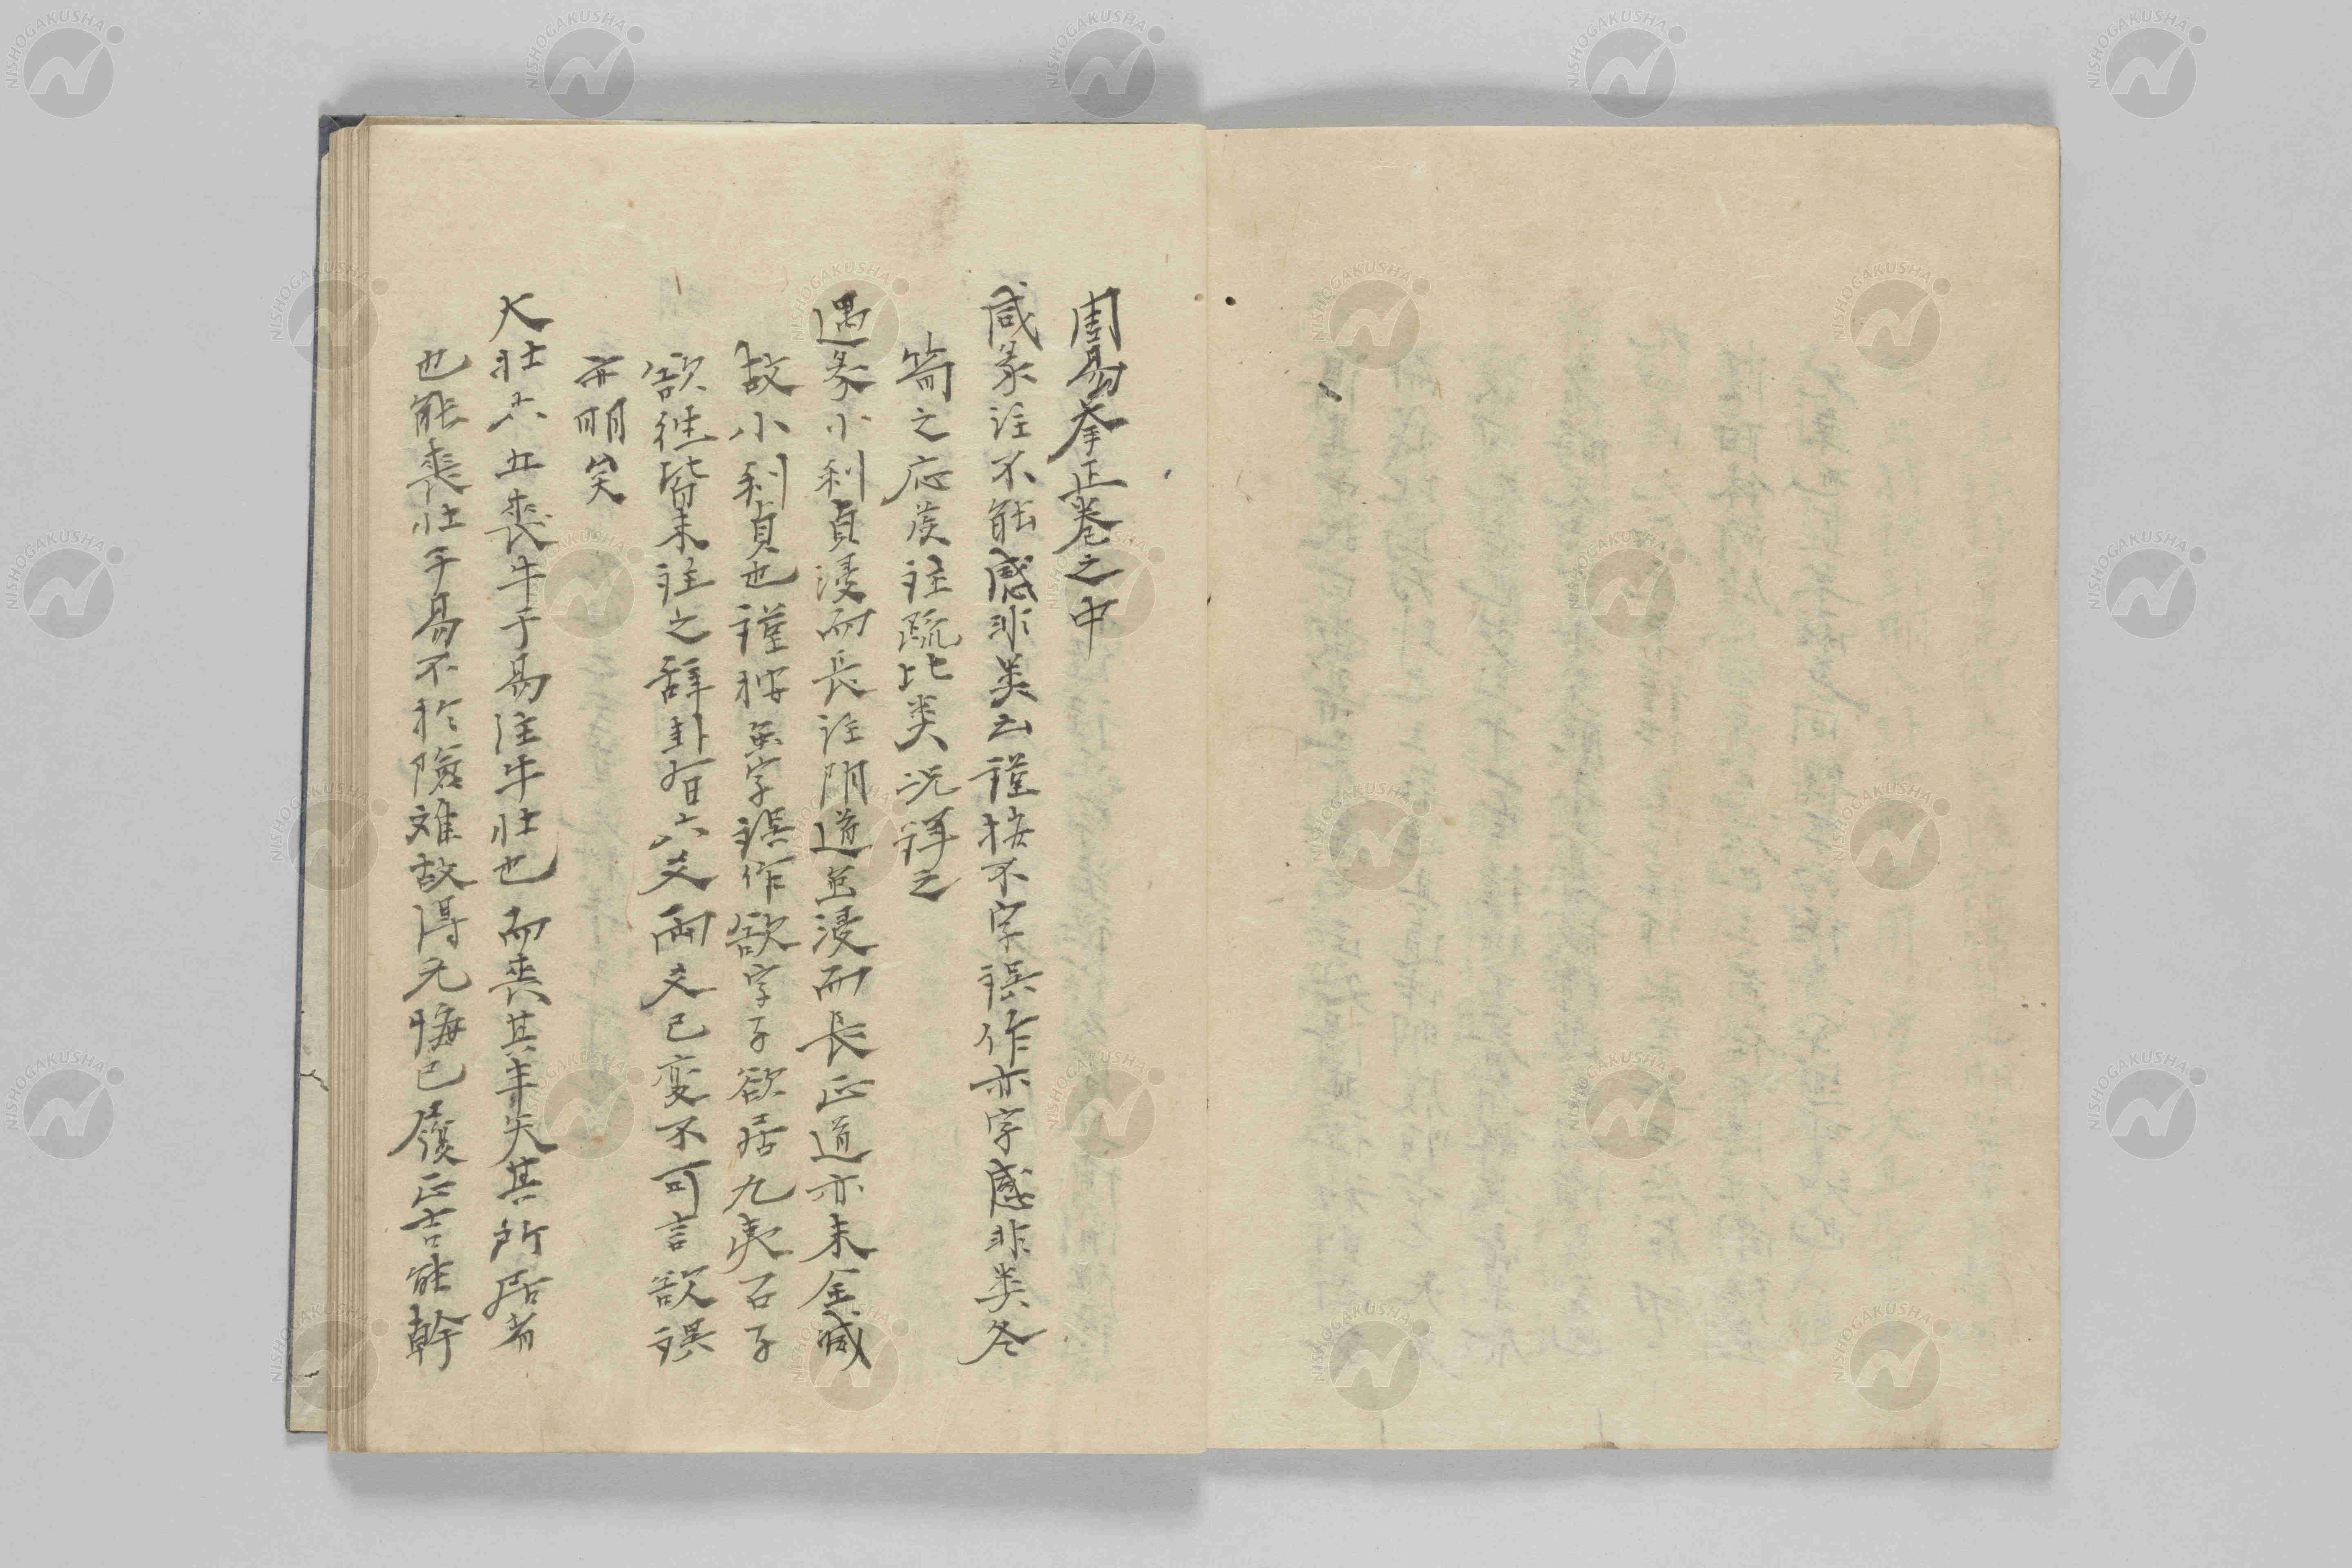 周易挙正巻之中
咸彖註不能感非类云謹按不字誤作亦字感非类冬
筒之応废註疏比类况詳之
遇彖小利貞浸而長註阴道並浸而長正道亦未全滅
故小利貞也謹按並字誤作欲字子欲居九夷召子
欲徃皆未註之辞卦有六爻兩爻已変不可言欲誤
亦明矣
大壮六五喪牛于易注牛壮也而喪其羊失其所居者
也能喪壮于易不於險难故得无悔已履正吉能幹
NISHOGAKUSHA